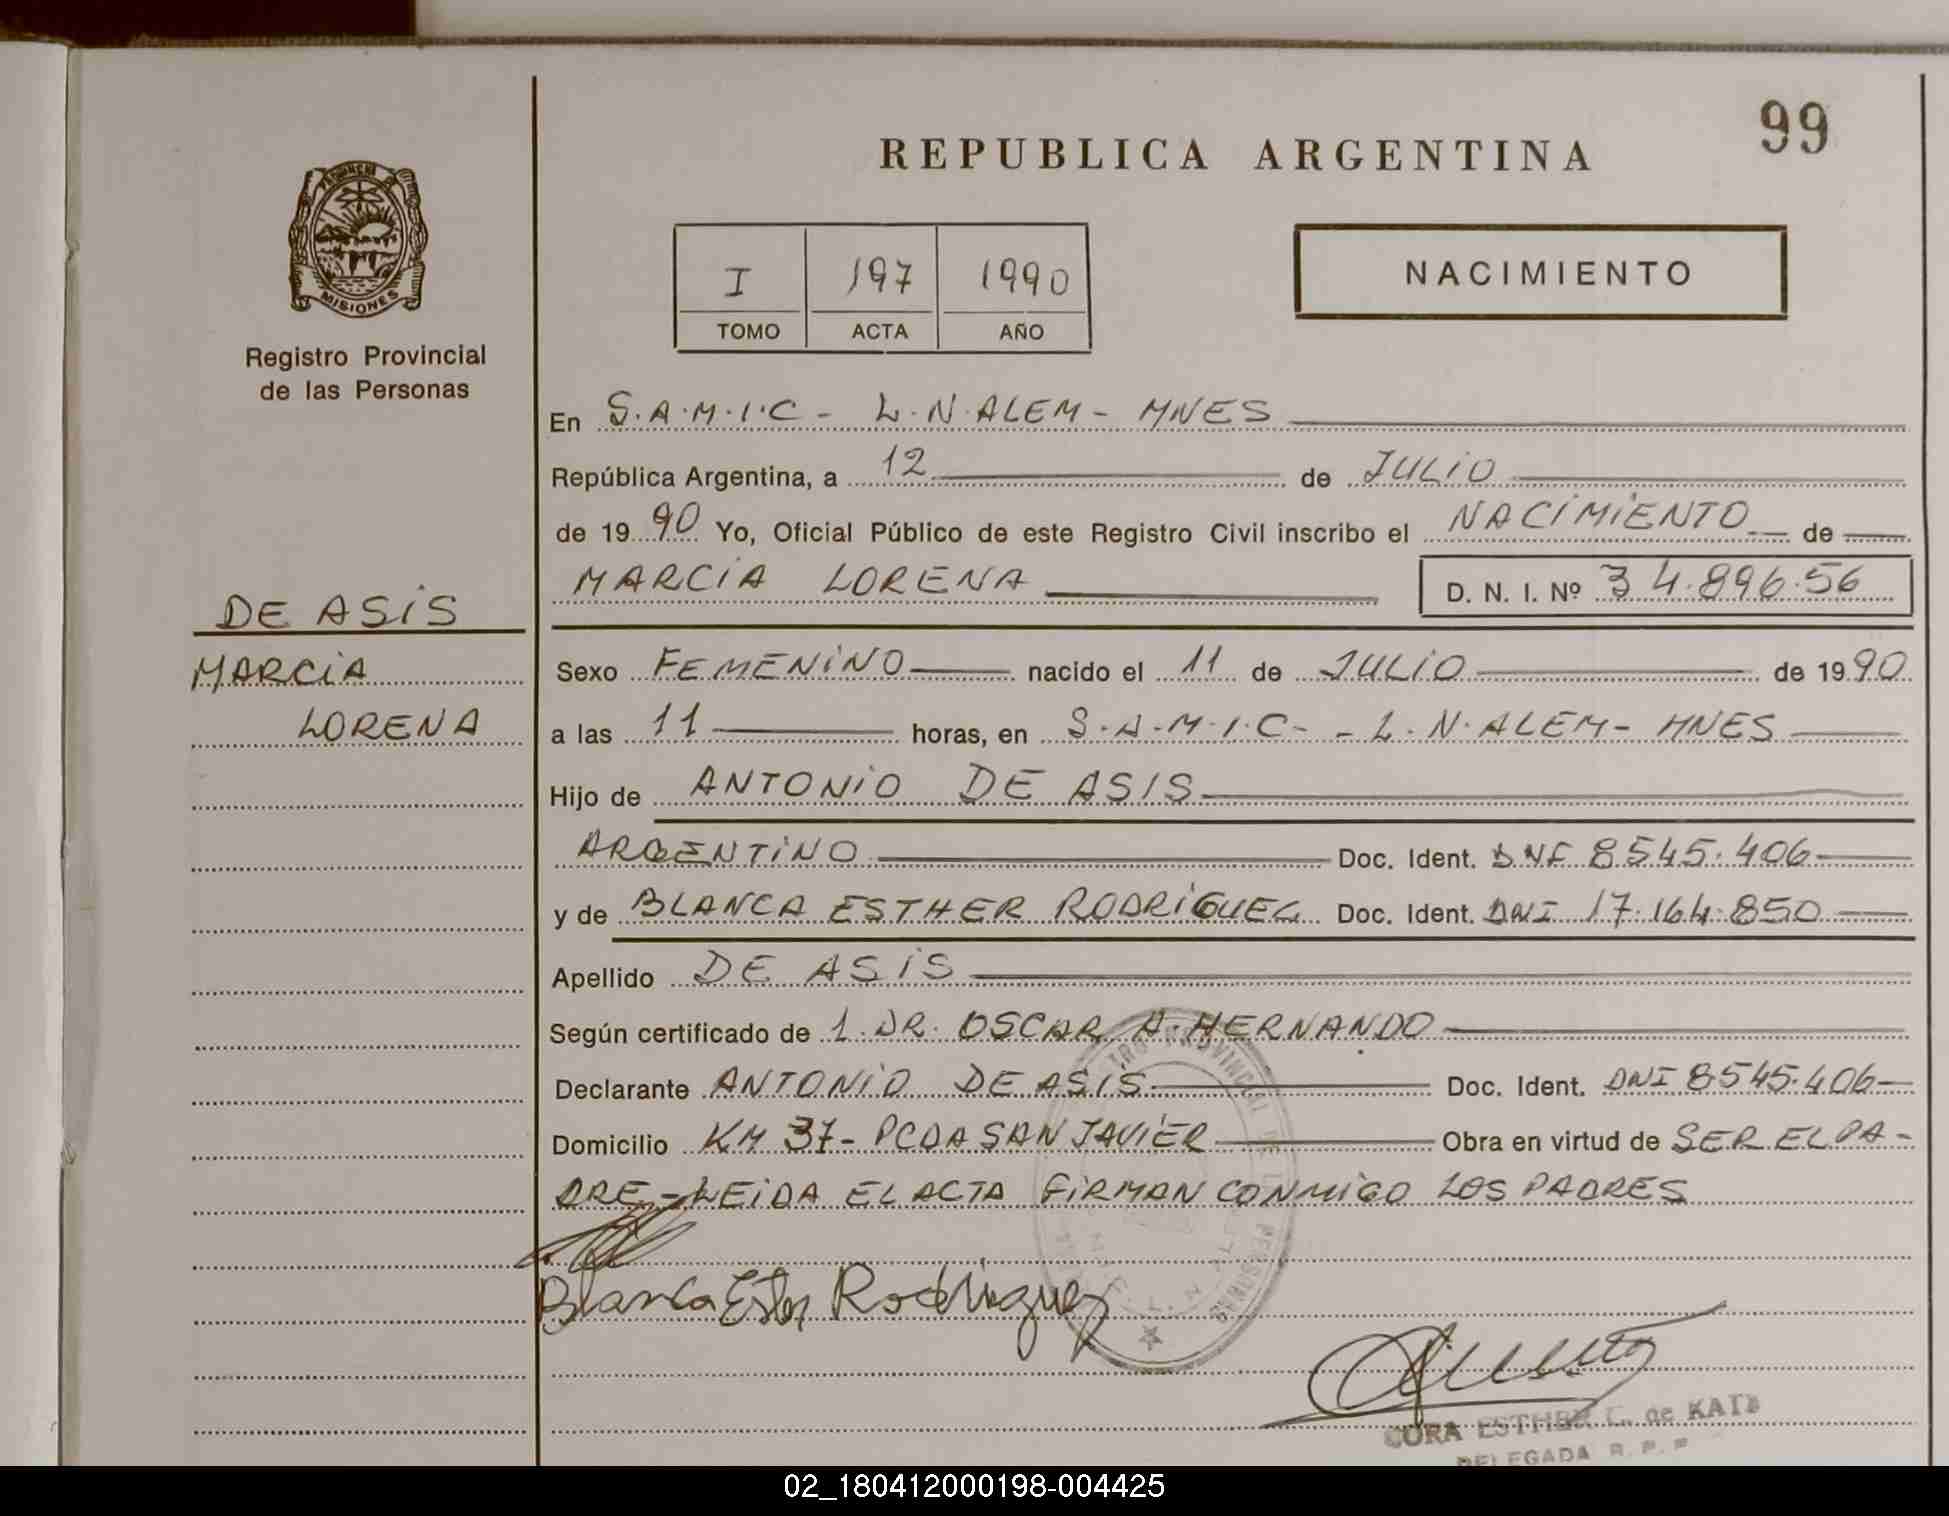 REPUBLICA ARGENTINA
99
PROVINCIA DE
MISIONES
Registro Provincial
de las Personas
I 197 1990
TOMO ACTA AÑO
NACIMIENTO
En S.A.M.I.C - L.N.ALEM - MNES
República Argentina, a 12 de JULIO
de 1990 Yo, Oficial Público de este Registro Civil inscribo el NACIMIENTO de
MARCIA LORENA
D. N. I. Nº 34.896.56
DE ASIS
MARCIA
LORENA
Sexo FEMENINO nacido el 11 de JULIO de 1990
a las 11 horas, en S.A.M.I.C- - L.N.ALEM- MNES
Hijo de ANTONIO DE ASIS
ARGENTINO Doc. Ident. DNI 8545.406
y de BLANCA ESTHER RODRIGUEZ Doc. Ident. DNI 17.164.850
Apellido DE ASIS
Según certificado de 1.DR. OSCAR A.HERNANDO
Declarante ANTONIO DE ASIS Doc. Ident. DNI 8545.406
Domicilio KM 37- PCDA SAN JAVIER Obra en virtud de SER EL PA-
DRE - LEIDA EL ACTA FIRMAN CONMIGO LOS PADRES
Blanca Ester Rodriguez
REGISTRO PROVINCIAL DE LAS PERSONAS
CORA ESTHER C. de KATZ
DELEGADA R. P. P.
02_180412000198-004425